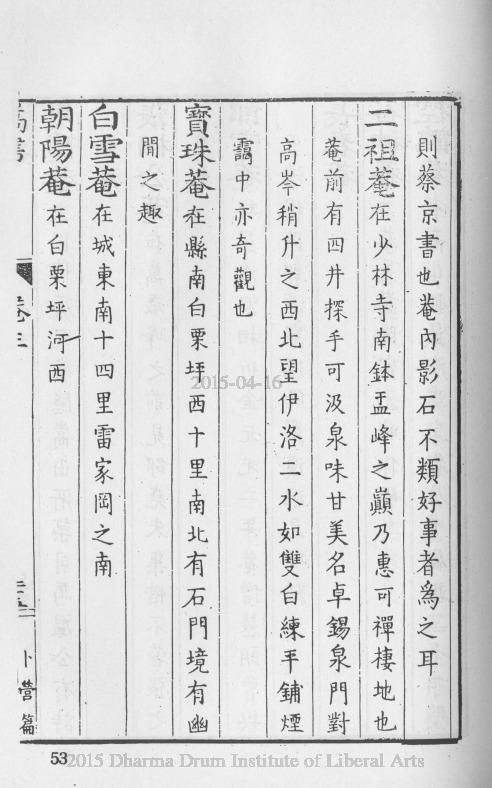 則蔡京書也菴內影石不類好事者為之耳
二祖菴在少林寺南鉢盂峰之巔乃惠可禪棲地也
菴前有四井探手可汲泉味甘美名卓錫泉門對
高岑稍升之西北望伊洛二水如雙白練平鋪煙
靄中亦奇觀也
寶珠菴在縣南白栗坪西十里南北有石門境有幽
閒之趣
白雪菴在城東南十四里雷家岡之南
朝陽菴在白栗坪河西
嵩書
卷三
卜營篇
53
2015-04-16
2015 Dharma Drum Institute of Liberal Arts